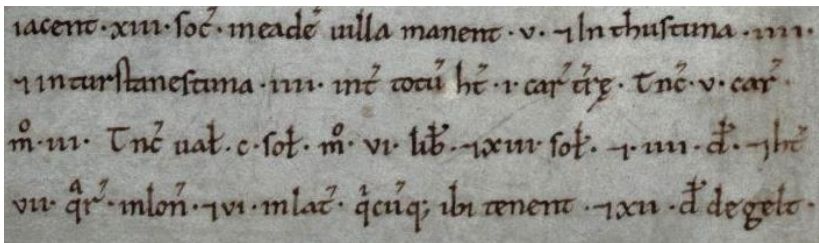 iacent · xiii · soc̄ · in eadē uilla manent · v · ⁊ In thustuna · iiii ·
⁊ in turstanestuna · iiii · int̄ totū ht̄ · i · car̄ tr̄ę · Tnc̄ · v · car̄ ·
m̊ · iii · Tnc̄ ual̄ · c · sol̄ · m̊ · vi · lib̄ · ⁊ xiii · sol̄ · ⁊ · iiii · d̄ · ⁊ ht̄
vii · qͣr̄ · in lon̄ · ⁊ vi · in lat̄ · qͥcūq; ibi tenent · ⁊ xii · d̄ de gelt ·